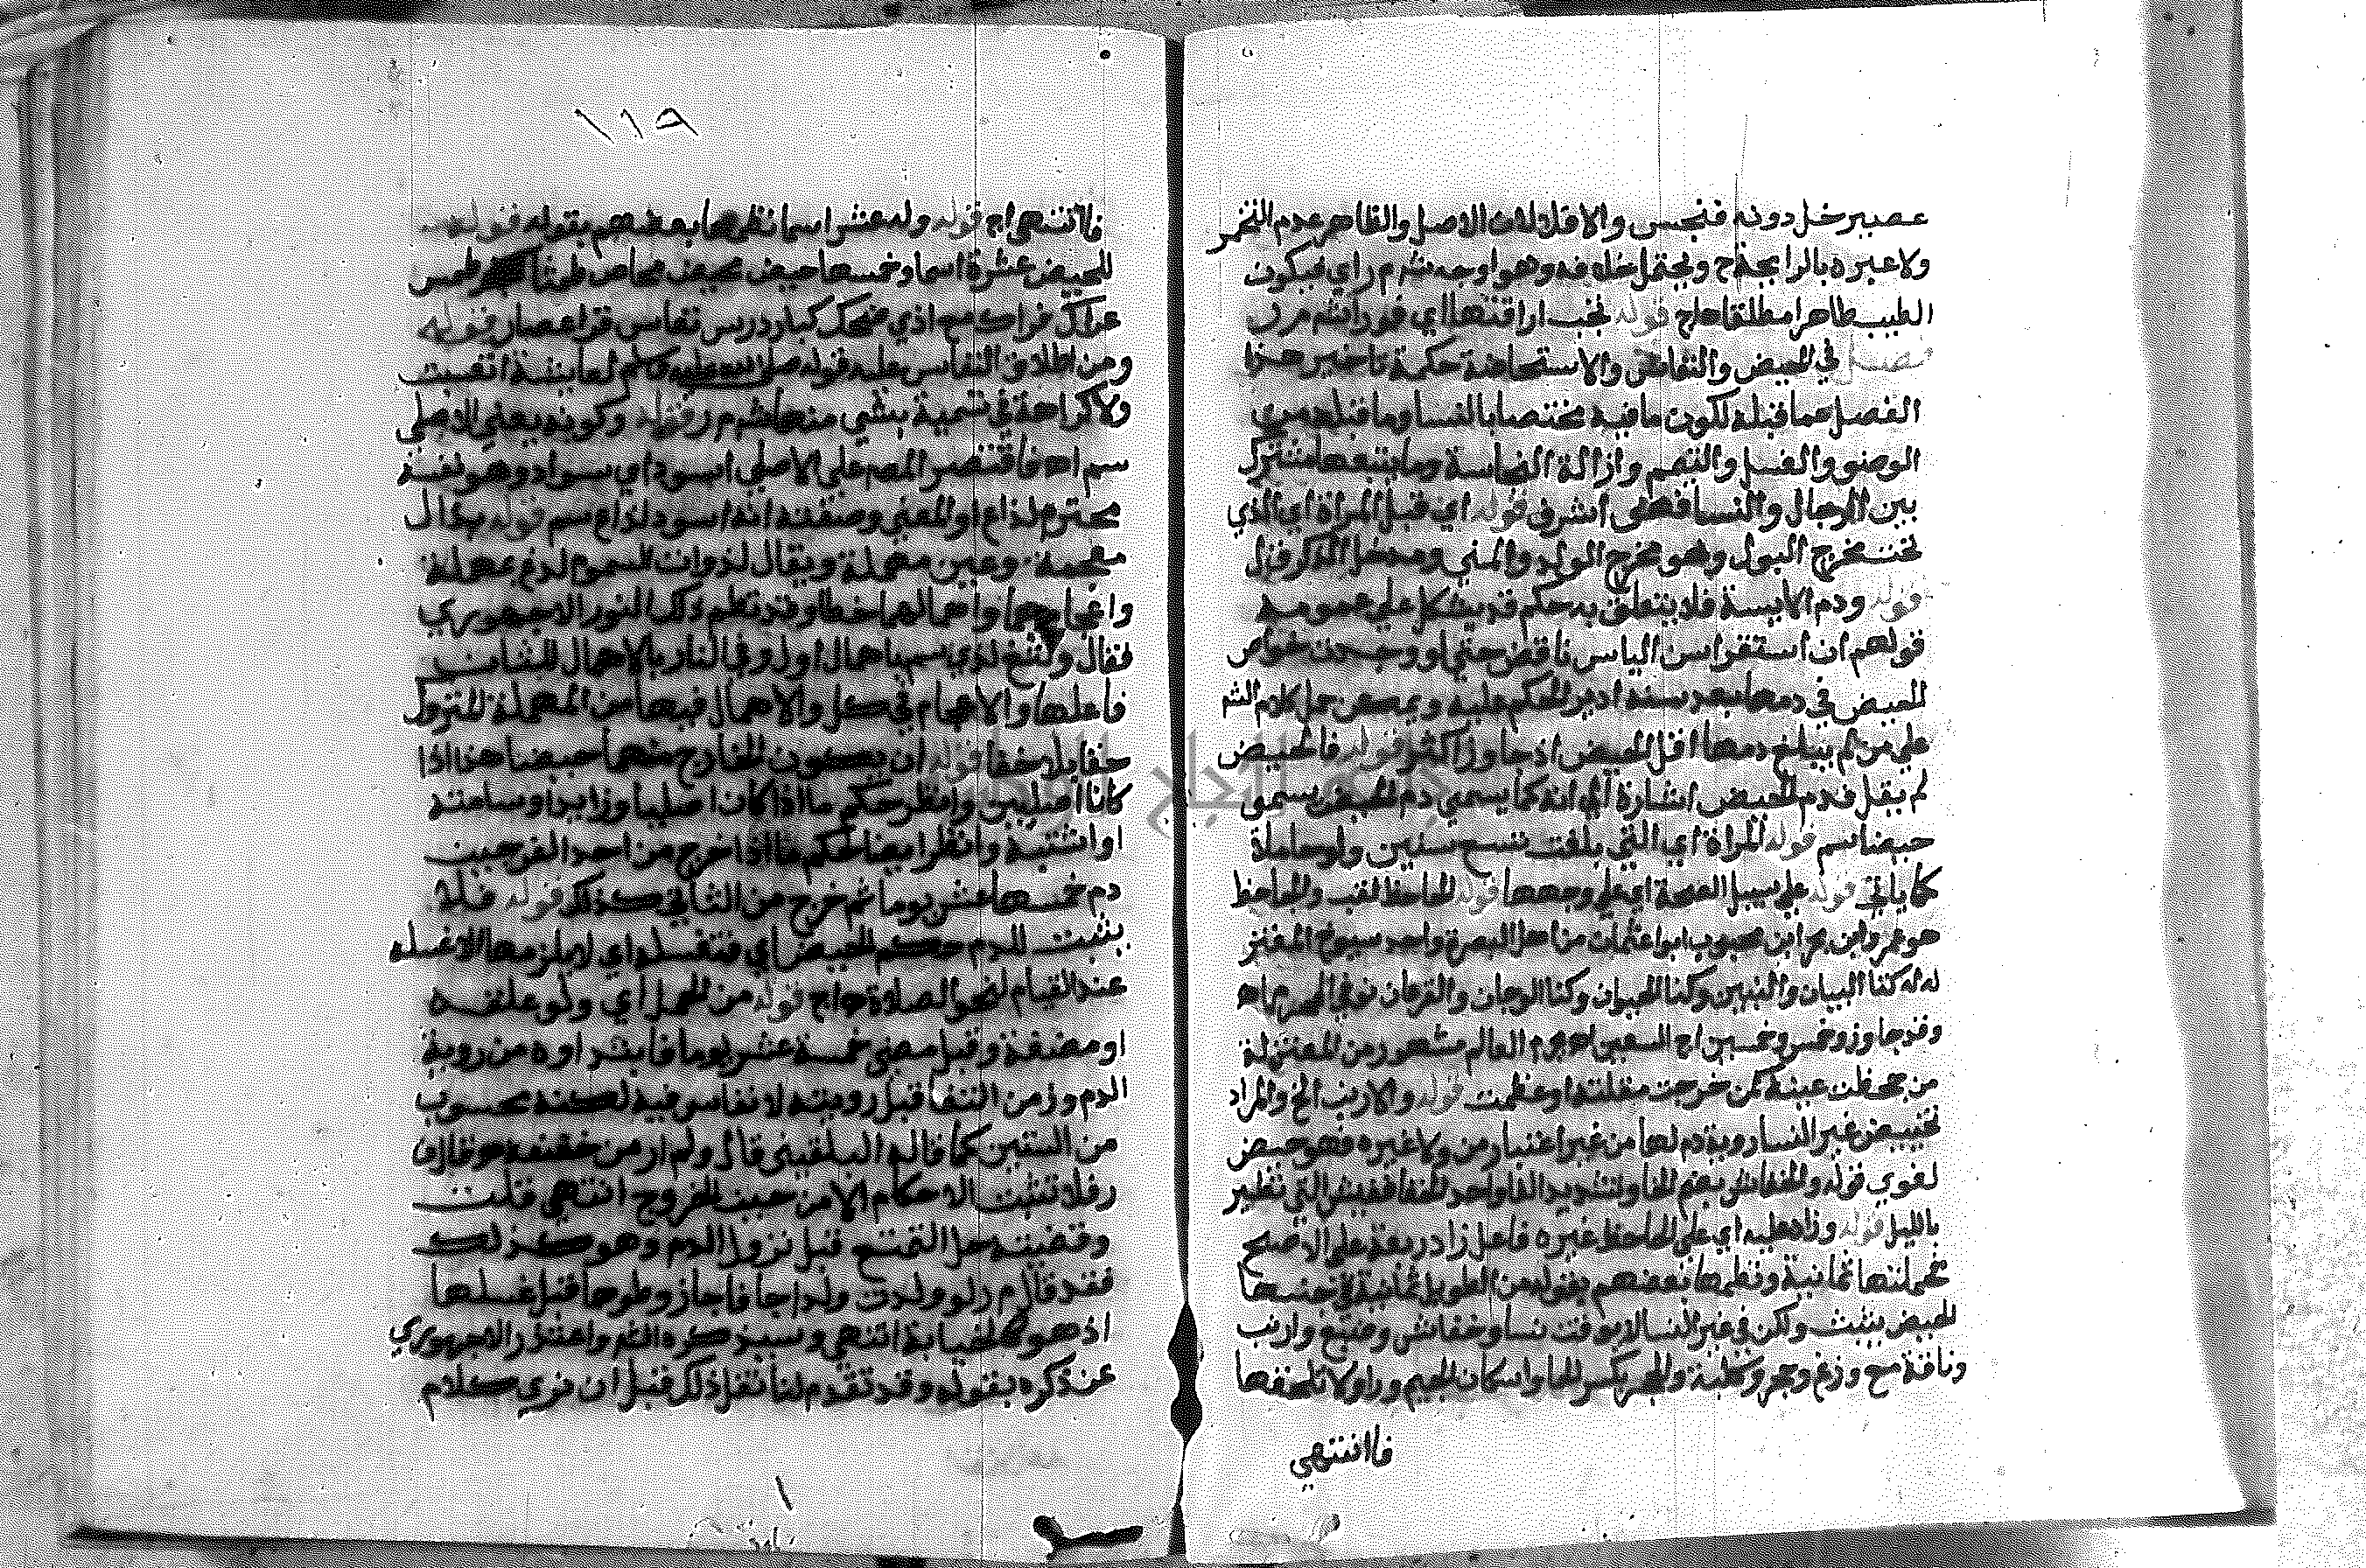 عصير خل دونه فنجس والا فلا لان الاصل والظاهر عدم التخمر
ولا عبرة بالرا يجتاح ويحتمل خلافه وهو اوجه ش م ر اي فيكون
الطيب طاهرا مطلقا اج قوله تجب اراقتها اي فورا ش م ر ف
فصل في الحيض والنفاس والاستحاضة حكمة تاخير هذا
الفصل عما قبله لكون ما فيه مختصا بالنسا وما قبله من
الوضو والغسل والتيمم وازالة النجاسة وما يتبعها مشترك
بين الرجال والنسا فهي اشرف قوله اي قبل المراة اي الذي
تحت مخرج البول وهو مخرج الولد والمني ومدخل الذكر ق ل
قوله ودم الايسة فلا يتعلق به حكم قد يشكل على عمومه
قولهم ان استقرا سن الياس ناقص حتى لو وجدن خواص
الحيض في دمها بعد سنه ادير الحكم عليه ويمكن حمل كلام الش
على من لم يبلغ دمها اقل الحيض اذ جاوز اكثر قوله فالحيض
لم يقل فدم الحيض اشارة الى انه كما يسمى دم الحيض يسمى
حيضا سم قوله المراة اي التي بلغت تسع سنين ولو حاملا
كما ياتي قوله على سبيل الصحة اي على وجهها قوله الجاحظ لقب والجاحظ
هو عمرو ابن بحر ابن محبوب ابو اعثمان من اهل البصرة واحد سيوخ المعتز
له له كتا البيان والتبيين وكتا الحيوان وكتا
وقد جاوز وخمس وخمسين اج السبعين العالم مشهور من المعتزلة
من جحظت عينه كمن خرجت مقلته او عظمت قوله والارنب الخ والمراد
بحيض غير النسا روية دم لها من غير اعتبار زمن ولا غيره فهو حيض
لغوي قوله والخفاش بضم الخا وتشديد الفا واحد الخفافيش التي تطير
بالليل قوله وزاد عليه اي على الجاحظ غيره فاعل زاد اربعة على الاصح
فجملتها ثمانية ونظمها بعضهم بقوله من الطويل ثمانية في جنسها
الحيض يثبت ولكن في غير النسا لا يوقت نسا وخفاش وضبع وارنب
وناقة مع وزغ وحجر وكلبة والحجر بكسر الحا واسكان الجيم ورا ولا تلحقها
فا انتهى
١١٩
فا انتهى اج قوله وله عشر اسما نظمها بعضهم بقوله قوله
للحيض عشرة اسما وخمسها حيض محيض محاض طمث طمس
عراك فراك مع اذى ضحك كبار درس نفاس قرا عصار قوله
ومن اطلاق النفاس عليه قوله صلى الله عليه وسلم لعايشة انفست
ولا كراهة في تسمية بشي منها ش م ر قوله وكونه يعني الاصلي
سم اه فاقتصر المصـ على الاصلي اسود اي سواد وهو لغة
محترم لذاع او المعنى وصفته انه اسود لذاع سم قوله بذال
معجمة وعين مهملة ويقال لذوات السموم لدغ بمهملة
واعجامهما واهمالهما خطا وقد نظم ذلك النور الاجهوري
فقال ولدغ لذي سم باهمال اول وفي النار بالاهمال للثان
فاعلها والاعجام في كل والاهمال فيهما من المهملة المتروك
حقا بلا خفا قوله ان يكون الخارج منهما حيضا هذا اذا
كانا اصليين وانظر حكم ما اذا كان اصليا وزايدا وسامته
او اشتبه وانظر ايضا الحكم ما اذا خرج من احد الفرجين
دم خمسها عشر يوما ثم خرج من الثاني كذلك قوله فلا
يثبت للدم حكم الحيض اي فتغسله اي لا يلزمها الا غسله
عند القيام لنحو الصلاة اج قوله من الحمل اي ولو علقه
او مضغة وقبل مضي خمسة عشر يوما فابتداوه من روية
الدم وزمن النقا قبل رويته لا نفاس فيه لكنه محسوب
من الستين كما قاله البلقيني قال ولم ار من حققه وقال
ر فلا تثبت الاحكام الا من حيث الخروج انتهى قلت
وقضيته حل التمتع قبل نزول الدم وهو كذلك
فقد قال م ر لو ولدت ولدا جافا جاز وطوها قبل غسلها
اذ هو كالجنابة انتهى وسيذكره الش واعتذر الاجهوري
عن ذكره بقوله وقد تقدم لنا نقل ذلك قبل ان نرى كلام